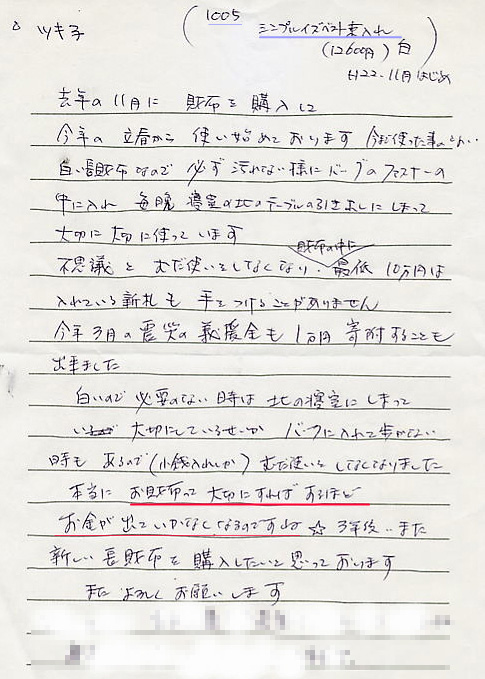 ツキ子
1005
シンプルイズベスト束入れ
(12600円) 白
H22.11月はじめ
去年の11月に 財布を購入し
今年の立春から 使い始めております 今まで使った事のない‥
白い長財布なので 必ず汚れない様にバッグのファスナーの
中に入れ 毎晩 寝室の北のテーブルの引き出しにしまって
大切に大切に使っています
財布の中に
不思議と むだ使いをしなくなり、最低10万円は
入れている新札も 手をつけることがありません
今年3月の震災の義援金も1万円寄附することも
出来ました
白いので 必要のない時は 北の寝室にしまって
大切にしているせいか バッグに入れて歩かない
時も あるので(小銭入れしか) むだ使いを しなくなりました
本当に お財布って 大切にすればするほど
お金が出ていかなくなるのですね ☆ 3年後‥また
新しい長財布を購入したいと思っております
また よろしくお願いします